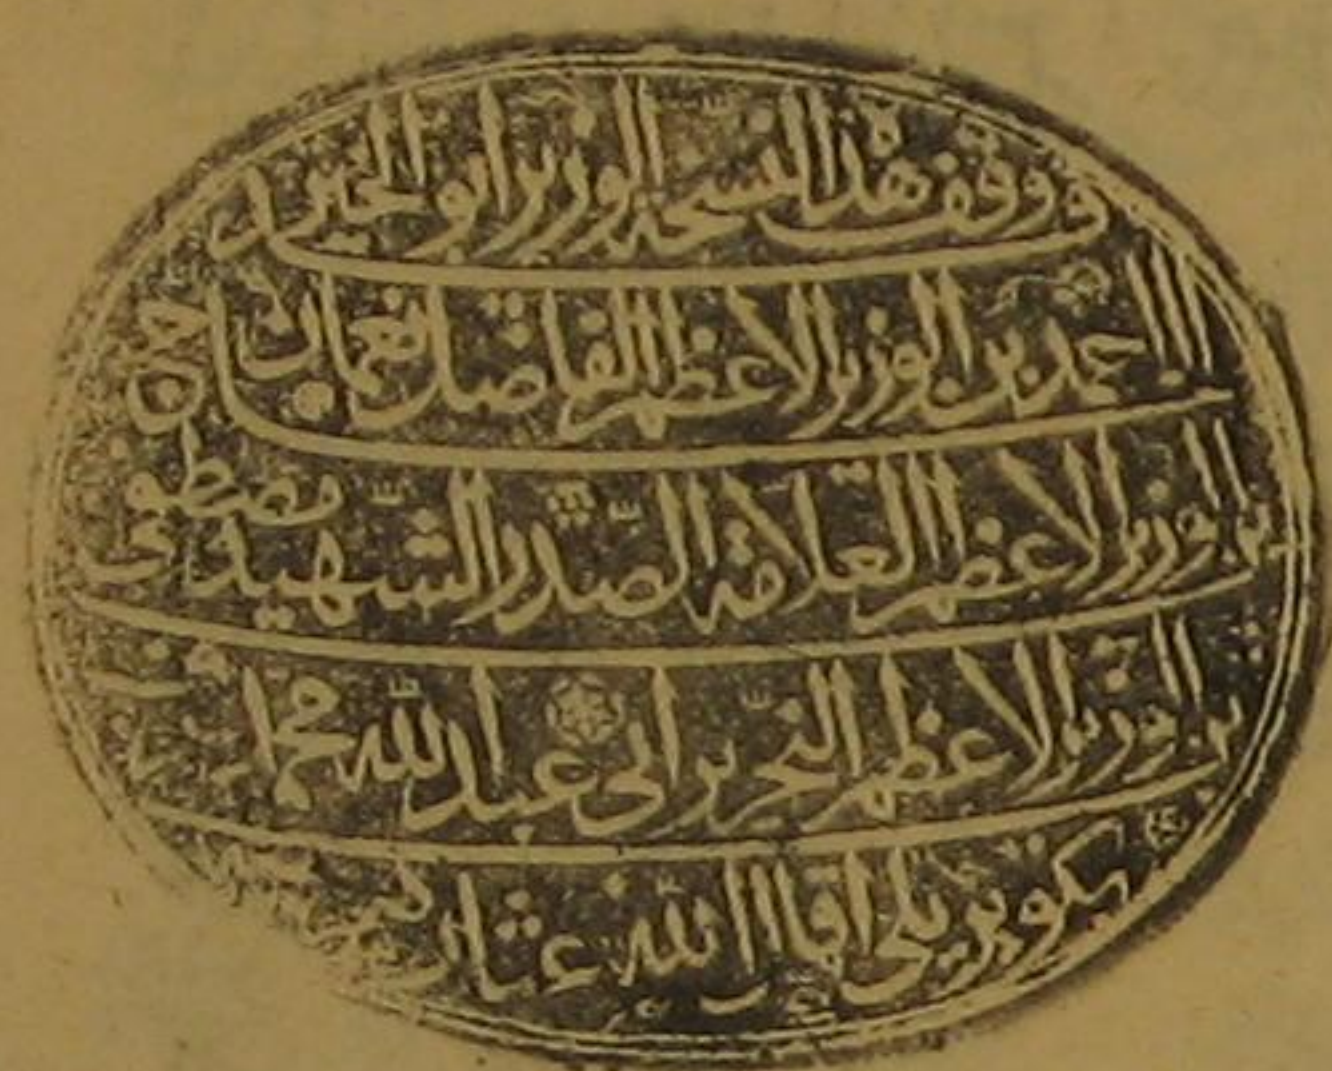 وقف هذا النسخة الوزير ابو الخير
احمد بن الوزير الاعظم الفاضل نعمان
بن الوزير الاعظم العلامة الصدر الشهيد مصطفى
بن الوزير الاعظم النحرير ابى عبد الله محمد
كوپريلى اقال الله عثارهم